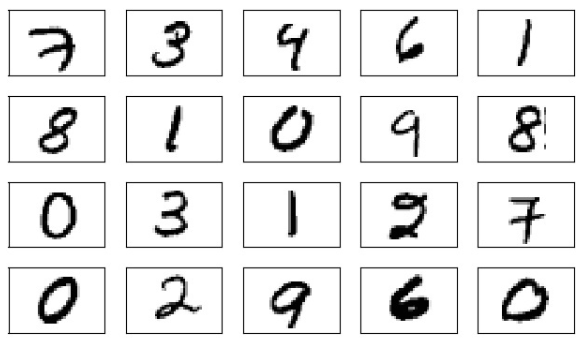 7 3 4 6 1
8 1 0 9 8
0 3 1 2 7
0 2 9 6 0